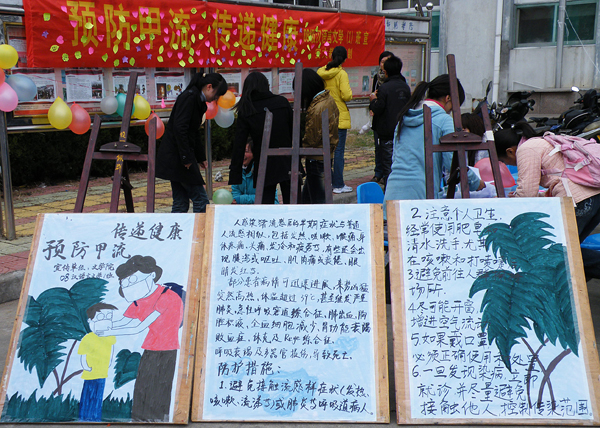 预防甲流 传递健康
传递健康
预防甲流
宣传单位:文学院
人感染猪流感后的早期症状与普通
人流感相似,包括发热、咳嗽、喉痛、身
体疼痛、头痛、发冷和疲劳等,有些还会出
现腹泻或呕吐、肌肉痛或疲倦、眼
睛发红等。
部分患者病情可迅速进展,来势凶猛
突然高热、体温超过39℃,甚至继发严重
肺炎、急性呼吸窘迫综合征、肺出血、胸
腔积液、全血细胞减少、肾功能衰竭
败血症、休克及Reye综合征、
呼吸衰竭及多器官损伤,导致死亡。
防护措施:
1.避免接触流感样症状(发热、
咳嗽、流涕等)或肺炎等呼吸道病人。
2.注意个人卫生,
经常使用肥皂
清水洗手尤其
在咳嗽和打喷嚏
3.避免前往人群
诊所。
4.尽可能开窗,
增进空气流
5.如果戴口罩
必须正确使用
6.一旦发现染病,立即
就诊并尽量避免
接触他人,控制传染范围.